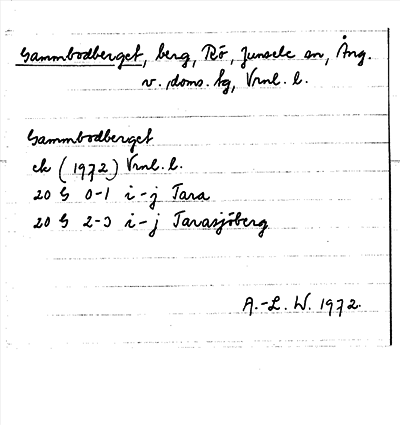 Gammbodberget, berg, Rö, Junsele sn, Ång.
v. doms. bg, Vrnl. l.
Gammbodberget
ek (1972) Vrnl. l.
20 G 0-1 i-j Tara
20 G 2-3 i-j Tarasjöberg
A.-L. W. 1972.